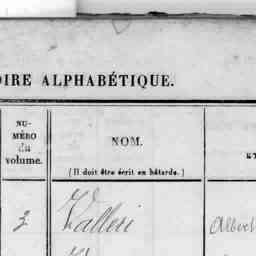 OIRE ALPHABÉTIQUE.
NU-
MÉRO
du
volume.
NOM.
(Il doit être écrit en bâtarde.)
ET
3 Valleri